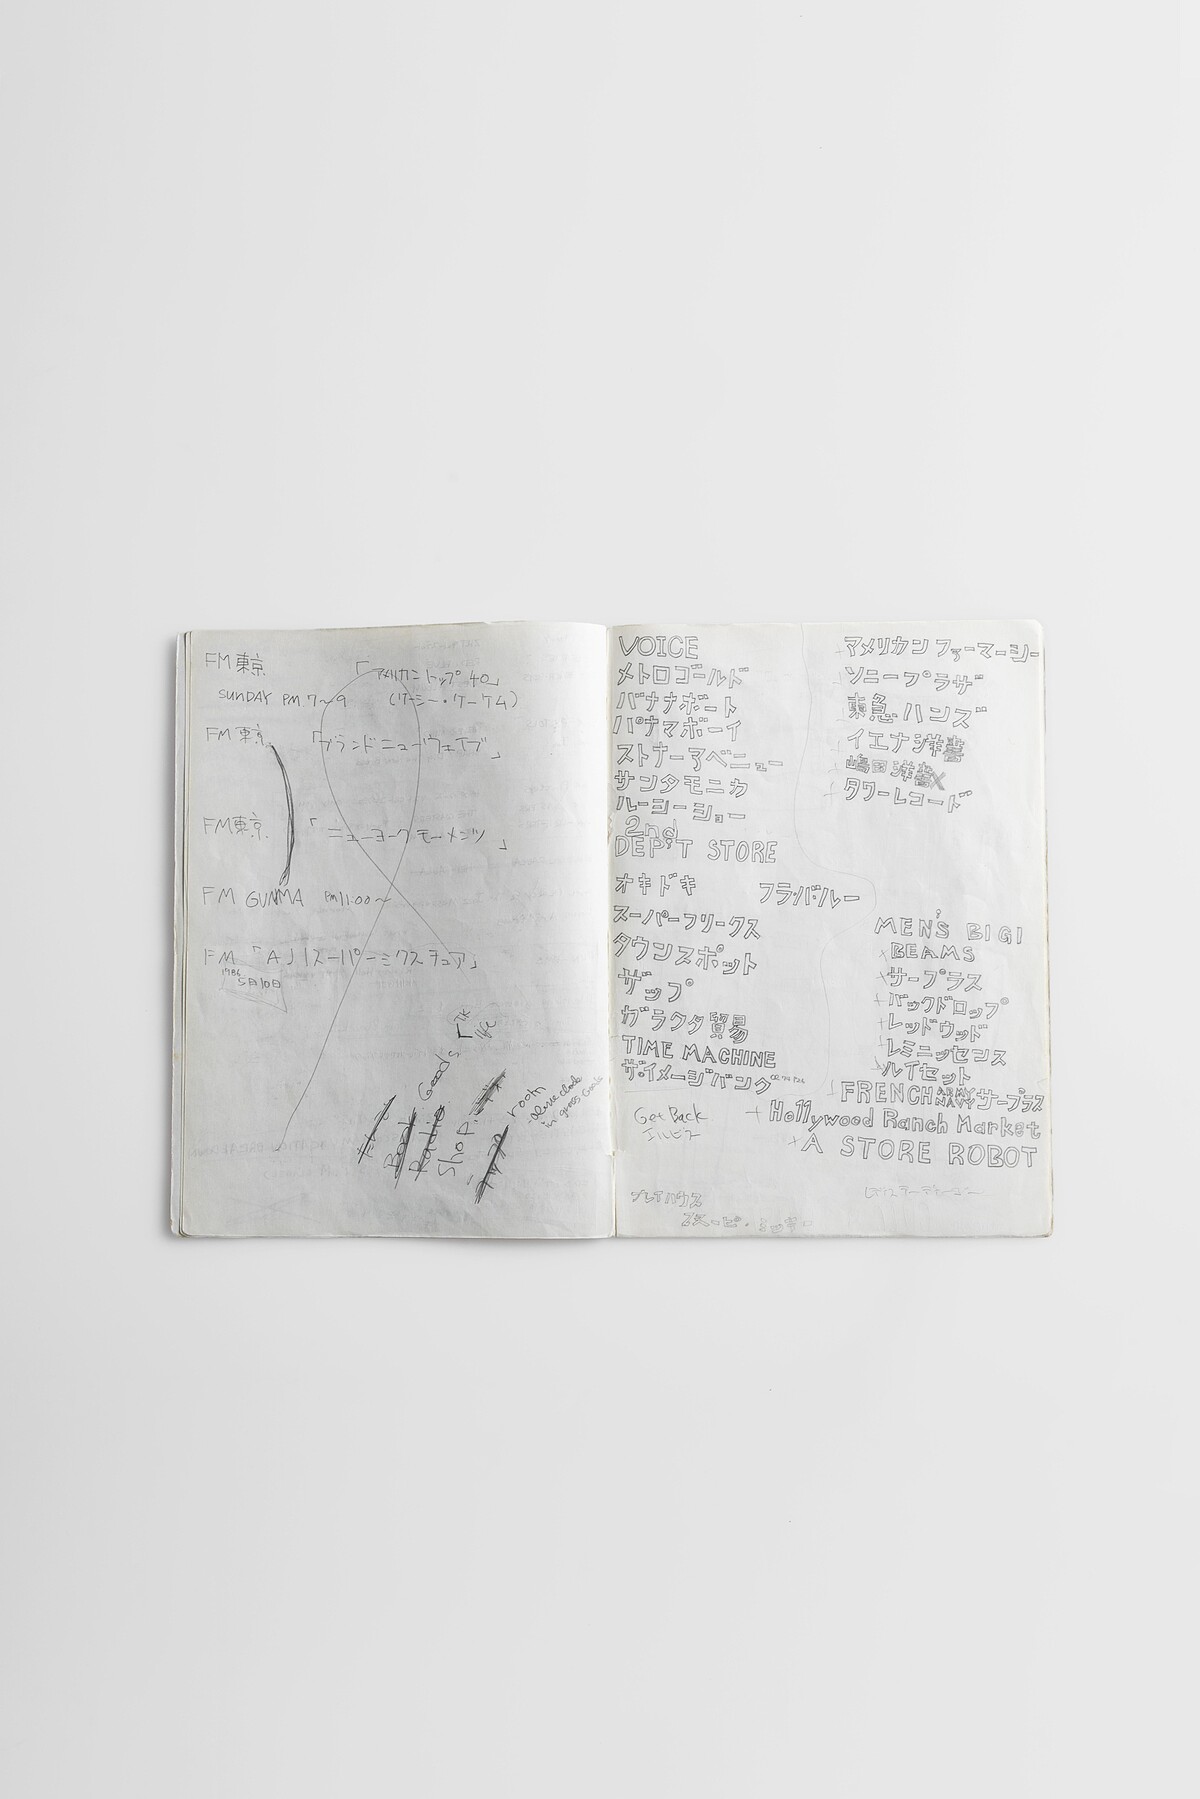 FM東京 「アメリカントップ40」
SUNDAY PM.7〜9 (ケーシー・ケーケム)
FM東京 「ブランドニューウェイブ」
FM東京 「ニューヨークモーメンツ」
FM GUNMA PM11:00〜
FM「AJIスーパーミクスチュア」
1986
5月10日
Goods
Book
Radio
Shop
room
VOICE
メトロゴールド
バナナボート
パナマボーイ
ストナーアベニュー
サンタモニカ
ルーシーショー
2nd
DEP'T STORE
オキドキ フラ・バ・ルー
スーパーフリークス
タウンスポット
ザップ
ガラクタ貿易
TIME MACHINE
ザ・イメージバンク
Get Back
エルビス
プレイハウス
アメリカンファーマーシー
ソニープラザ
東急ハンズ
イエナ洋書
嶋田洋書
タワーレコード
MEN'S BIGI
BEAMS
サープラス
バックドロップ
レッドウッド
レミニッセンス
ルイセット
FRENCH ARMY NAVY サープラス
Hollywood Ranch Market
A STORE ROBOT